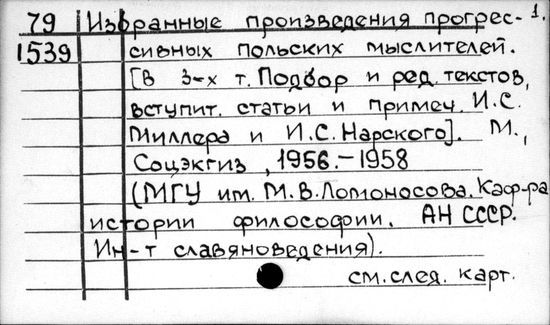 1.
79 Избранные произведения прогрес-
1539 сивных польских мыслителей.
[В 3-х т. Подбор и ред. текстов,
вступит. статьи и примеч. И.С.
Миллера и И.С. Нарского]. М.,
Соцэкгиз, 1956.-1958
(МГУ им. М.В.Ломоносова. Каф-ра
истории философии. АН СССР.
Ин-т славяноведения).
см. след. карт.